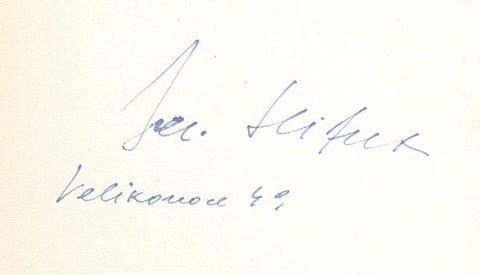 Jar. Seifert
Velikonoce 49